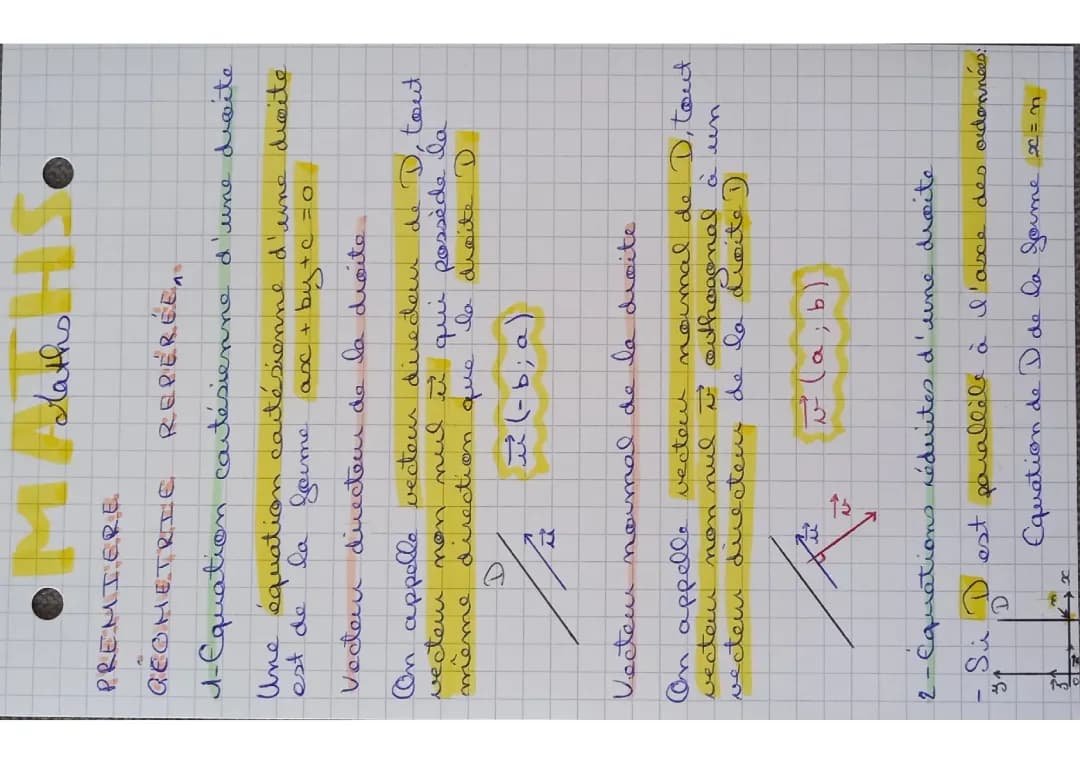 MATHS
Maths
PREMIERE
GÉOMETRIE REPÉRÉE
1-Equation cartésienne d'une droite
Une équation cartésienne d'une droite
est de la forme ax + by + c = 0
Vecteur directeur de la droite
On appelle vecteur directeur de D, tout
vecteur non nul u qui possède la
même direction que la droite D
D
u
u (-b ; a)
Vecteur normal de la droite
On appelle vecteur normal de D, tout
vecteur non nul v orthogonal à un
vecteur directeur de la droite D
u
v
v (a ; b)
2-Équations réduites d'une droite
- Si D est parallèle à l'axe des ordonnées:
Equation de D de la forme x = n
y
D
j
n
x